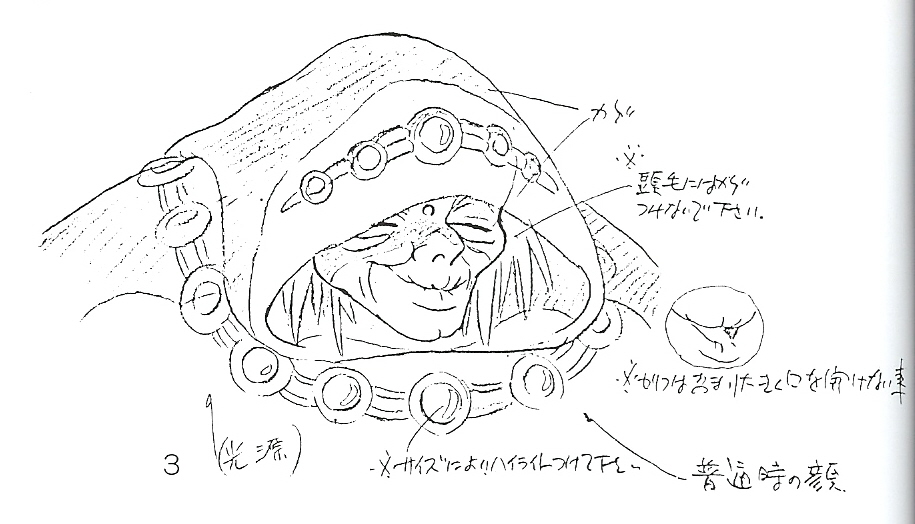 カゲ
※
頭毛にはカゲ
つけないで下さい。
※かつはあまり大きく口を開けない事
3
(光源)
※サイズによりハイライトつけて下さい
普通時の顔